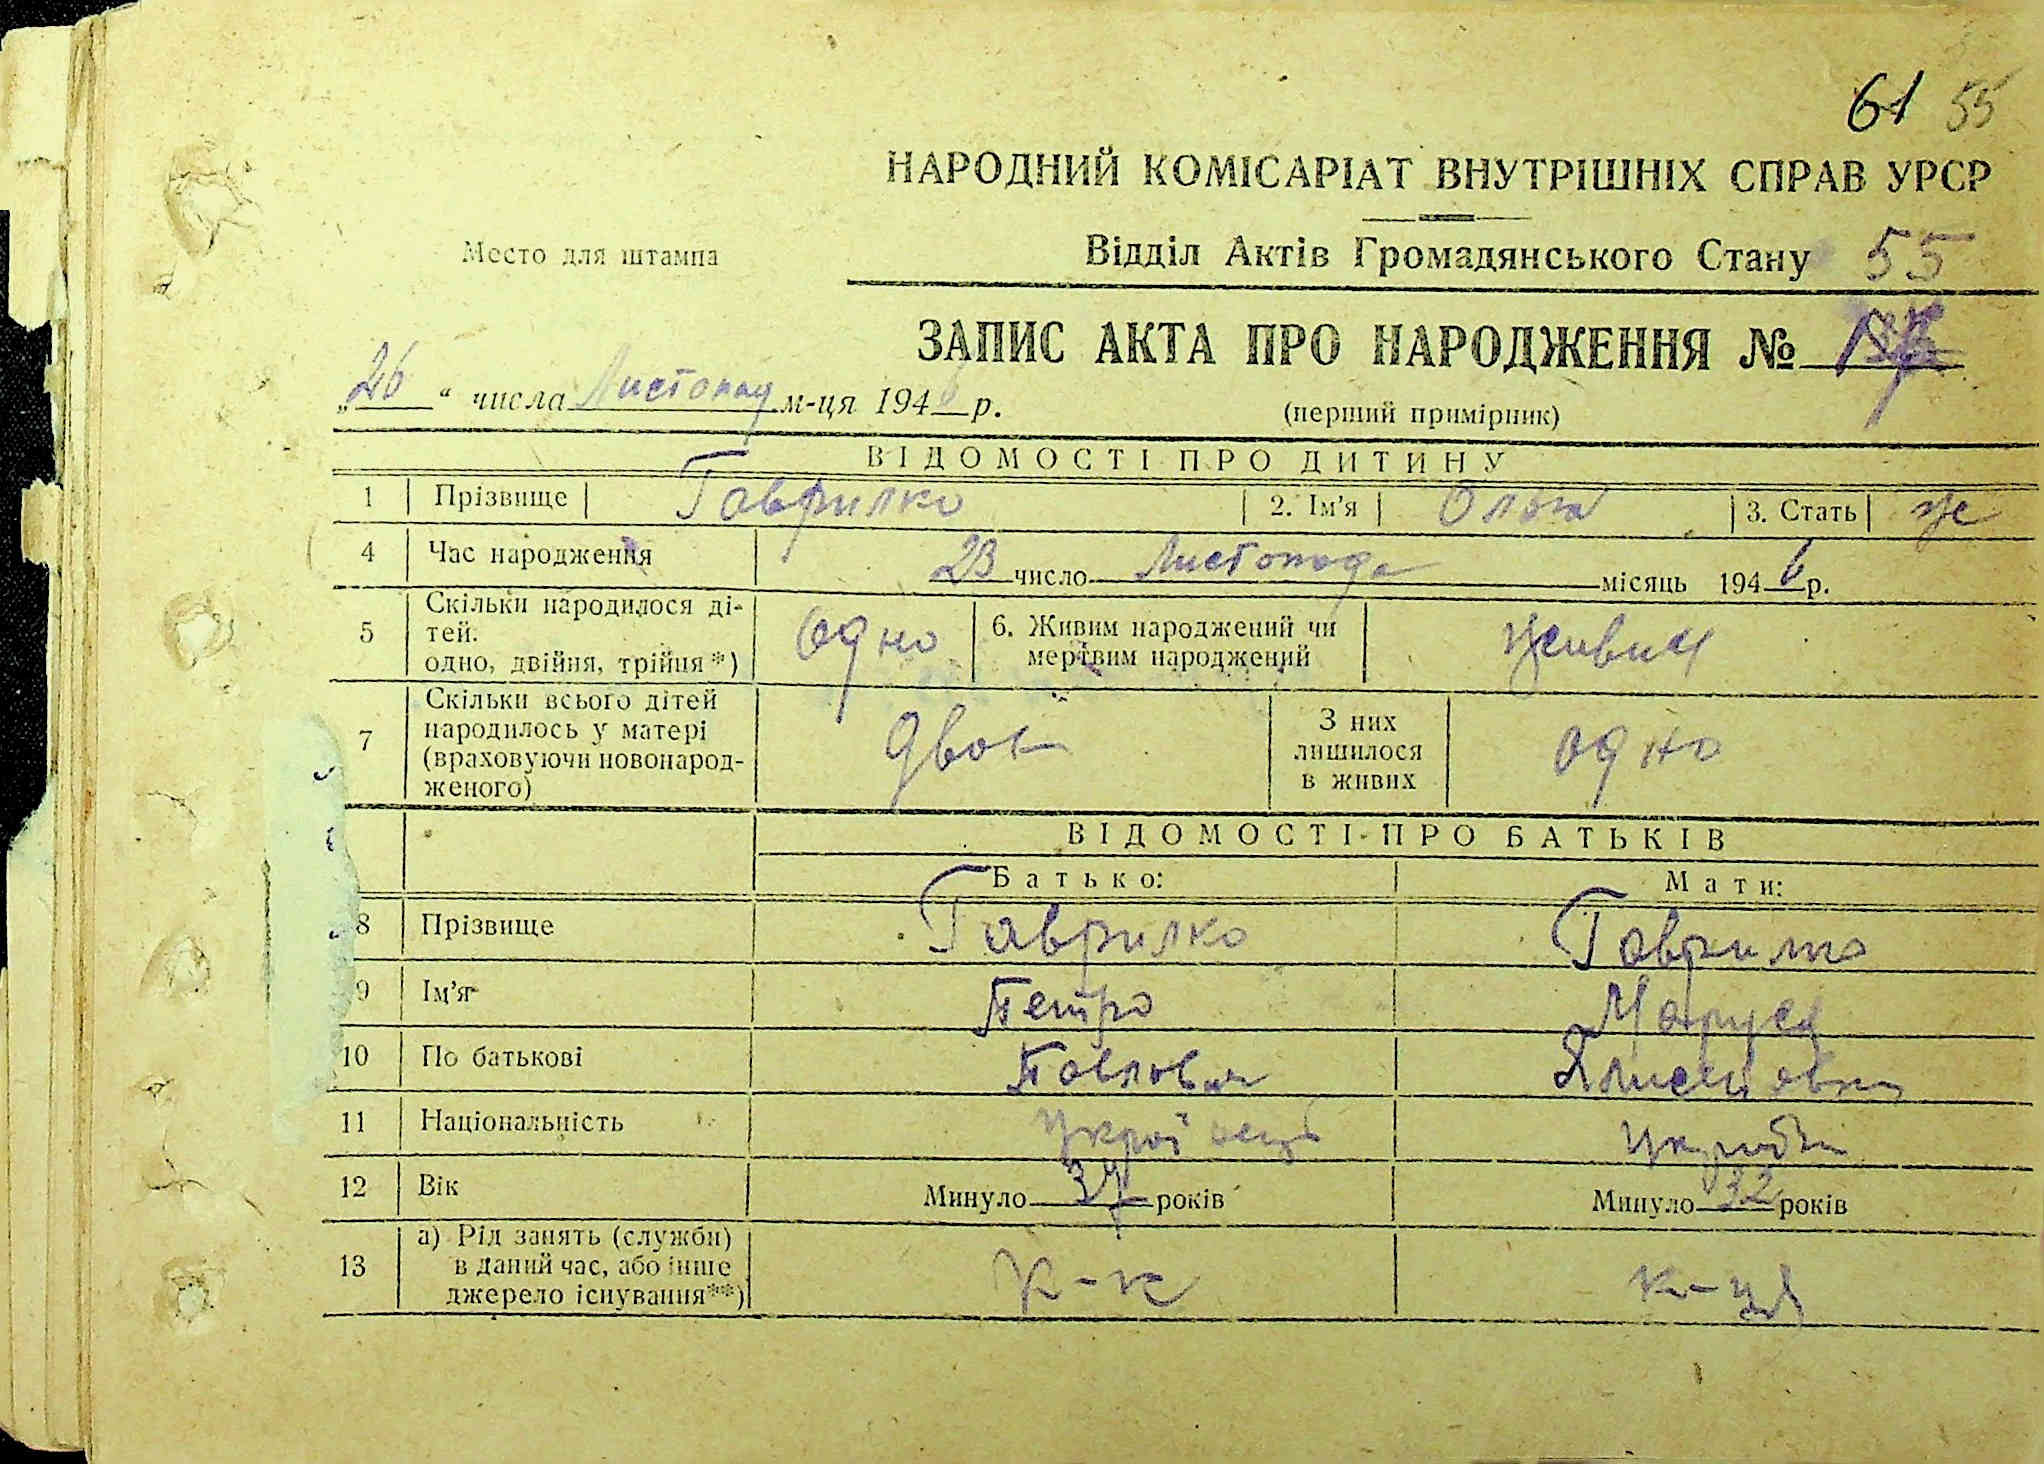 61 55
НАРОДНИЙ КОМІСАРІАТ ВНУТРІШНІХ СПРАВ УРСР
Место для штампа
Відділ Актів Громадянського Стану 55
ЗАПИС АКТА ПРО НАРОДЖЕННЯ №
„26“ числа Листопад м-ця 194 р.
(перший примірник)
ВІДОМОСТІ ПРО ДИТИНУ
1 Прізвище Гаврилко 2. Ім'я Ольга 3. Стать ж
4 Час народження 23 число Листопада місяць 1946 р.
5 Скільки народилося ді-
тей:
одно, двійня, трійня*) одно
6. Живим народжений чи
мертвим народжений живим
7 Скільки всього дітей
народилось у матері
(враховуючи новонарод-
женого) двоє
З них
лишилося
в живих одно
ВІДОМОСТІ ПРО БАТЬКІВ
Батько: Мати:
8 Прізвище Гаврилко Гаврилко
9 Ім'я Петро Маруся
10 По батькові Павлович
11 Національність українець українка
12 Вік Минуло 37 років Минуло 32 років
13 а) Рід занять (служби)
в даний час, або інше
джерело існування**) к-к к-ця